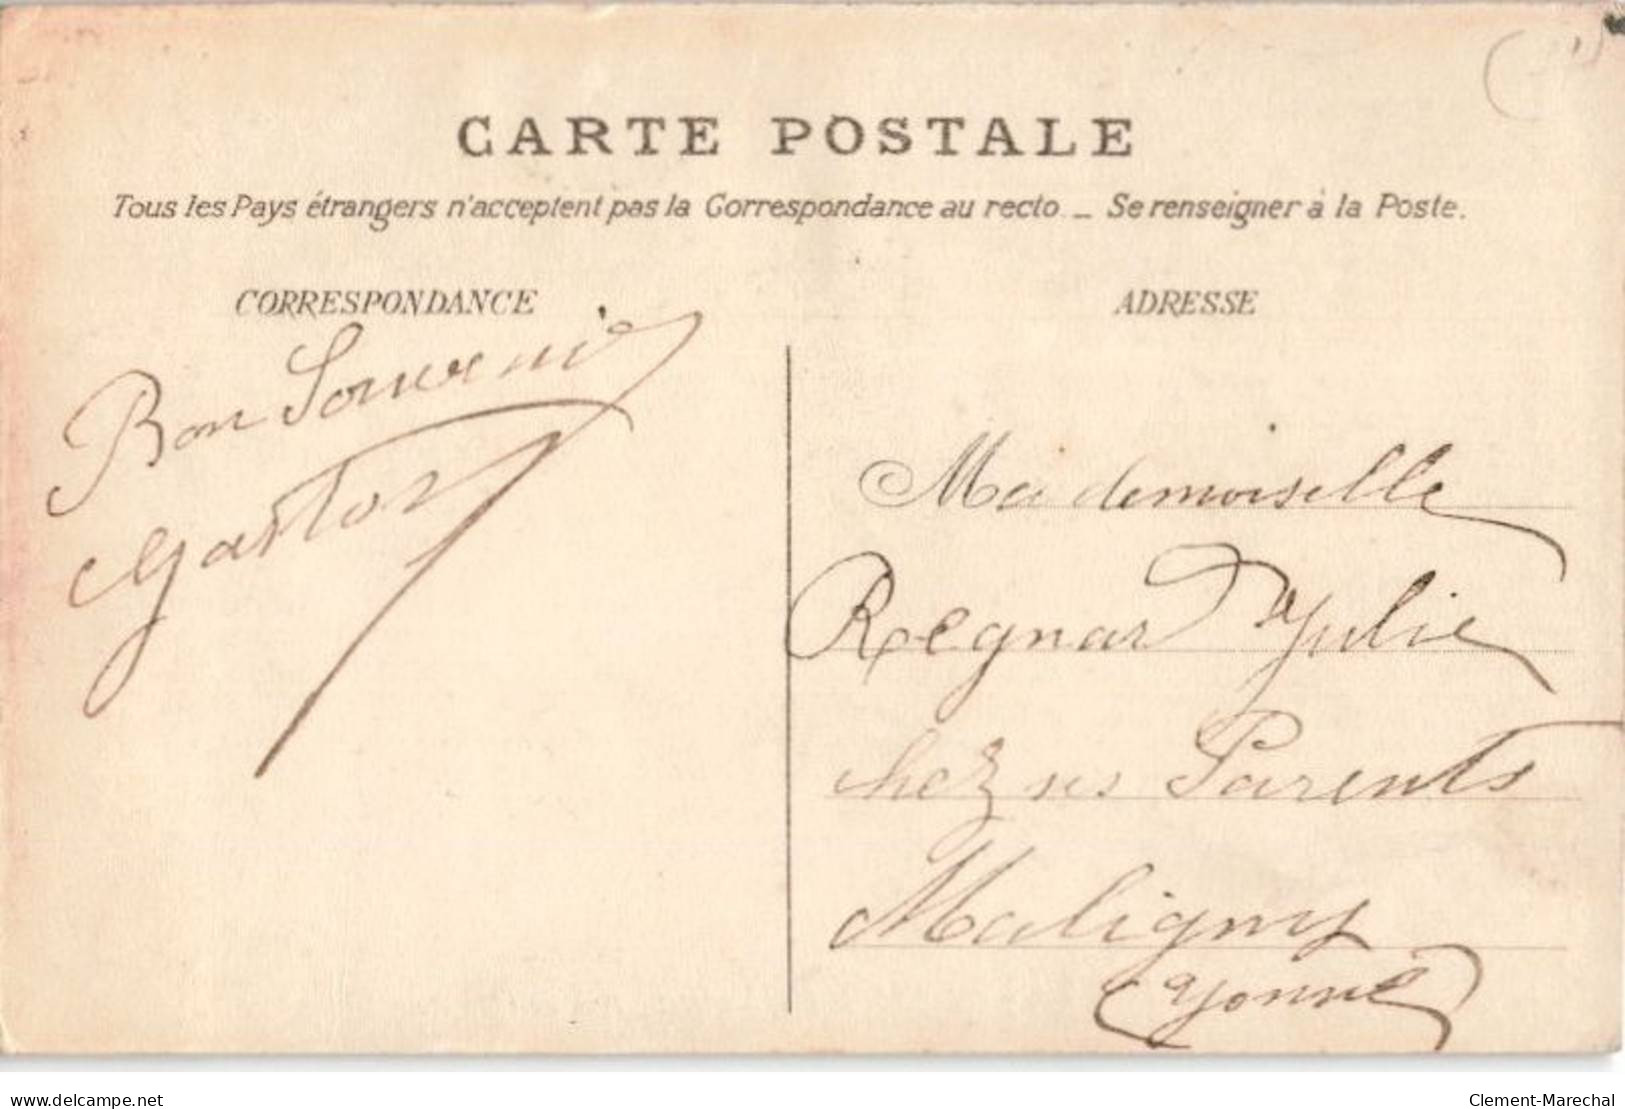 CARTE POSTALE
Tous les Pays étrangers n'acceptent pas la Correspondance au recto. — Se renseigner à la Poste.
CORRESPONDANCE
Bon Souvenir
Gaston
ADRESSE
Mademoiselle
Regnard Julie
chez ses Parents
Maligny
(Yonne)
www.delcampe.net
Clement-Marechal